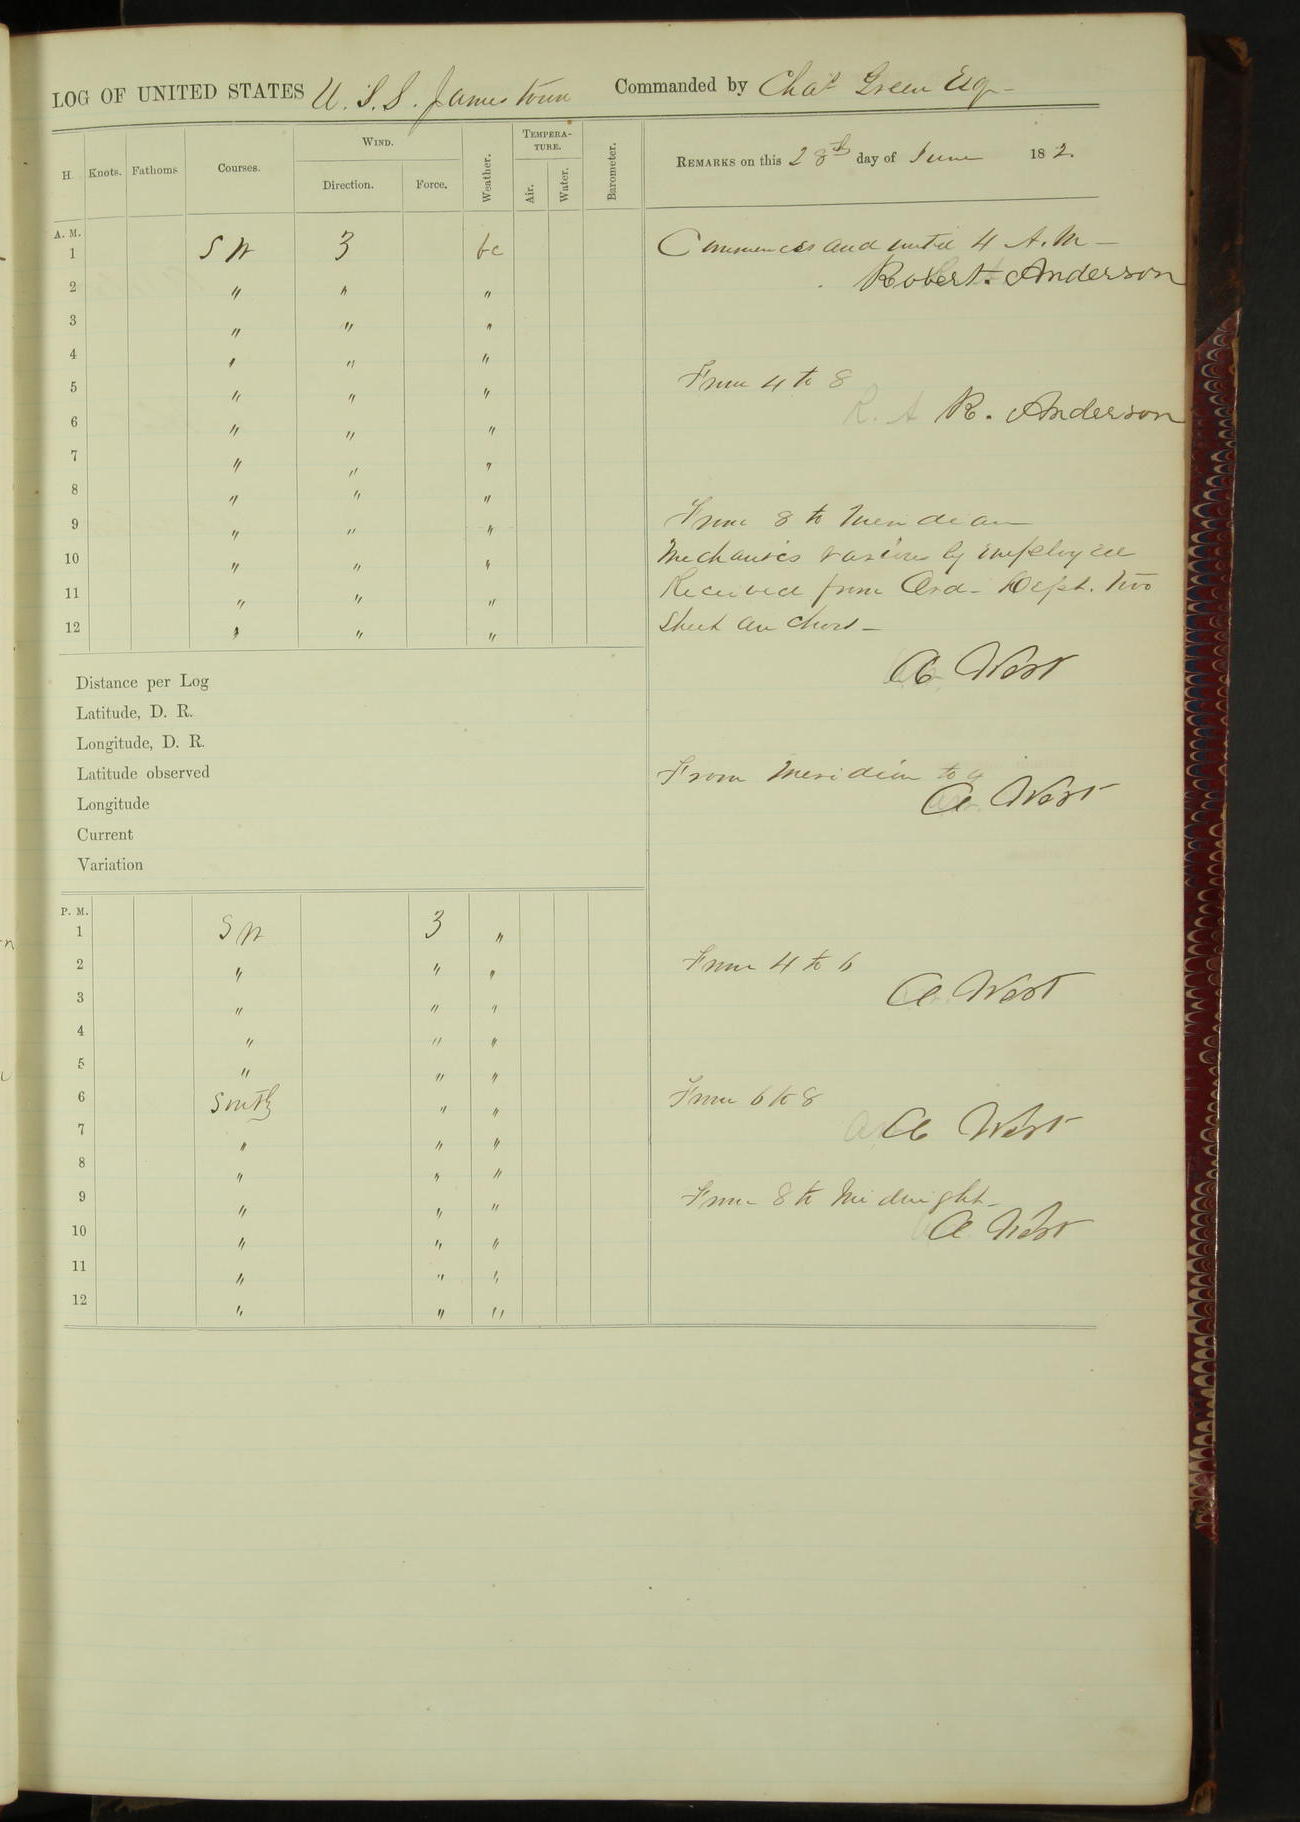 LOG OF UNITED STATES U.S.S. Jamestown Commanded by Chas Green Esq-
H. Knots. Fathoms. Courses. WIND. Direction. Force. Weather. TEMPERATURE. Air. Water. Barometer.
REMARKS on this 28th day of June 18 2.
A. M.
1 SW 3 bc
2 " " "
3 " " "
4 " " "
5 " " "
6 " " "
7 " " "
8 " " "
9 " " "
10 " " "
11 " " "
12 " " "
Commences and until 4 A.M-
Robert. Anderson
From 4 to 8
R. A R. Anderson
From 8 to Meridian
Mechanics variously employed
Received from Ord- Dept. two
Sheet anchors-
A West
Distance per Log
Latitude, D. R.
Longitude, D. R.
Latitude observed
Longitude
Current
Variation
From Meridian to 4
A West
P. M.
1 SW 3 "
2 " " "
3 " " "
4 " " "
5 " " "
6 South " "
7 " " "
8 " " "
9 " " "
10 " " "
11 " " "
12 " " "
From 4 to 6
A West
From 6 to 8
A West
From 8 to Midnight-
A West